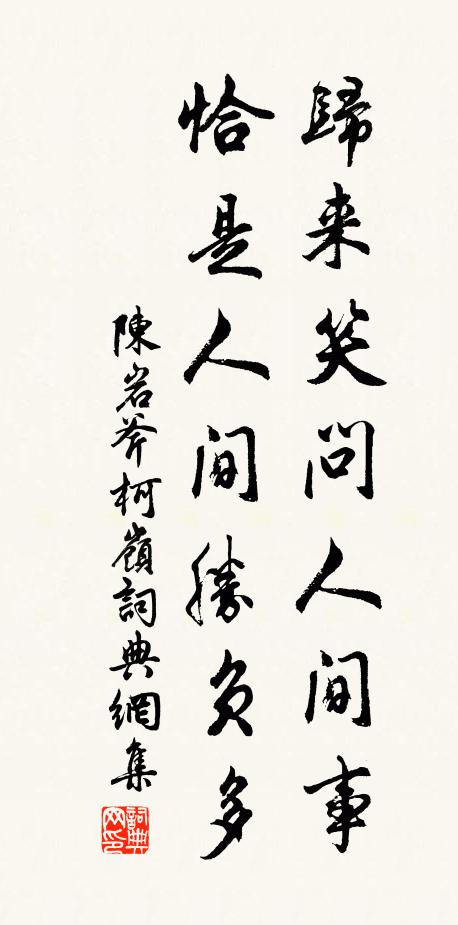 歸来笑問人间事
恰是人间勝負多
陳岩斧柯嶺詞典網集
詞典网印